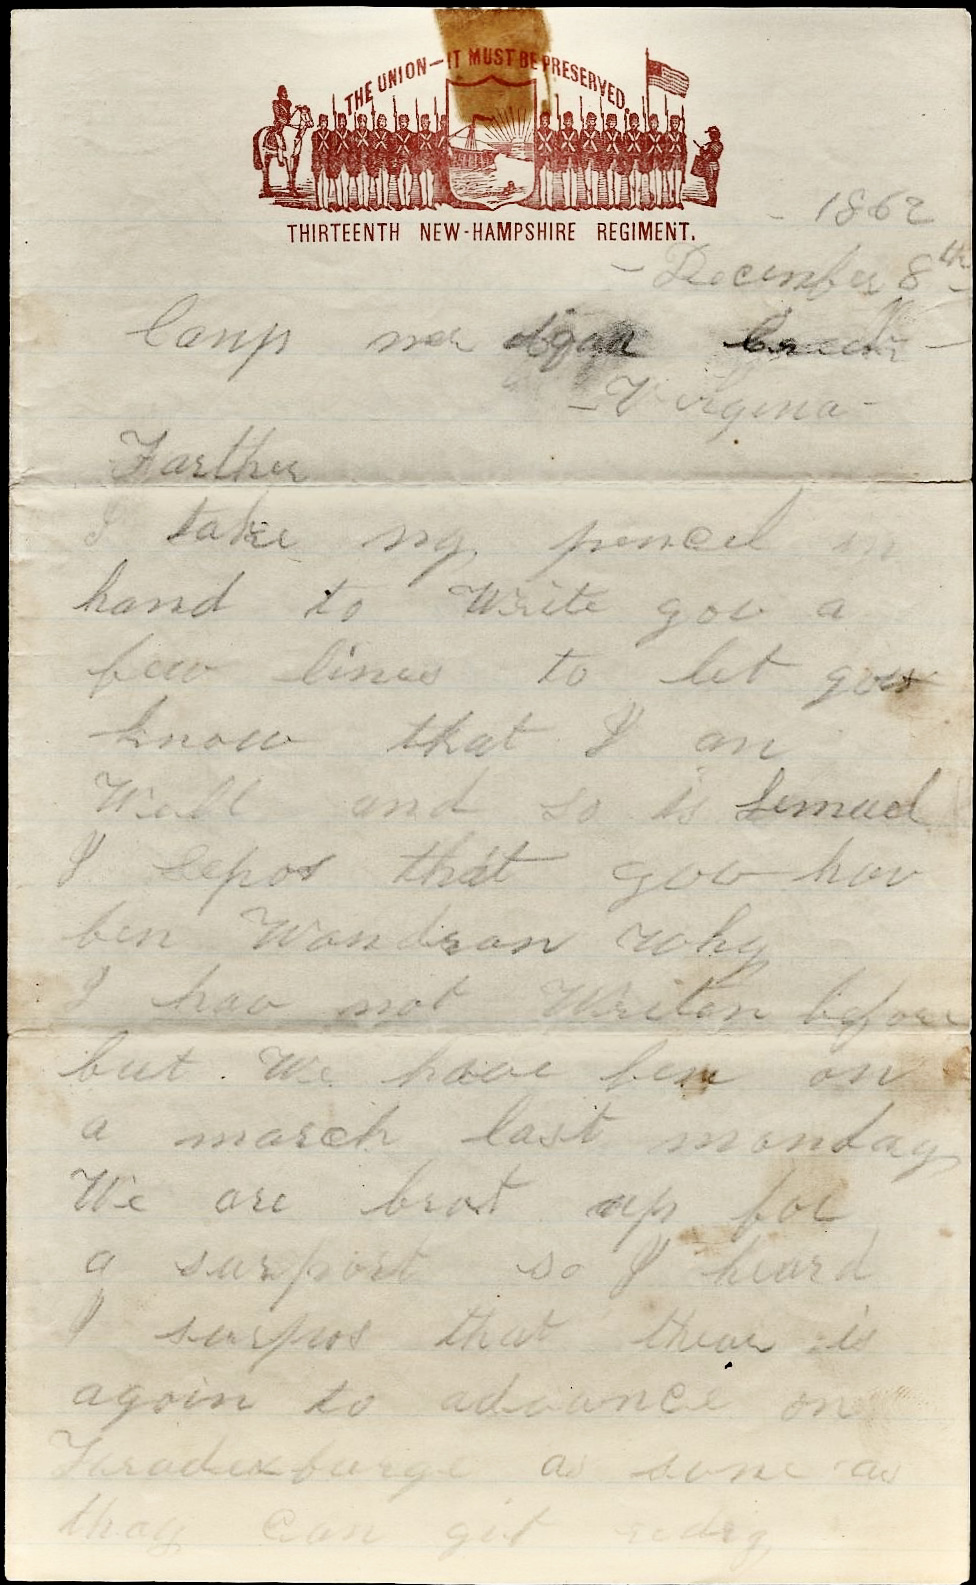 THE UNION—IT MUST BE PRESERVED.
THIRTEENTH NEW-HAMPSHIRE REGIMENT.
- 1862
- December 8th -
Camp ner
- Virgina -
Farther
I take my pencel in
hand to Write you a
few lines to let you
know that I am
Well and so is Lemuel
I sepos that you hav
ben Wondran why
I hav not Writen before
but We have ben on
a march last monday
We are brot up for
a surport so I heard
I surpos that thear is
agoin to advance on
Faradexburge as sune as
thay can git redig